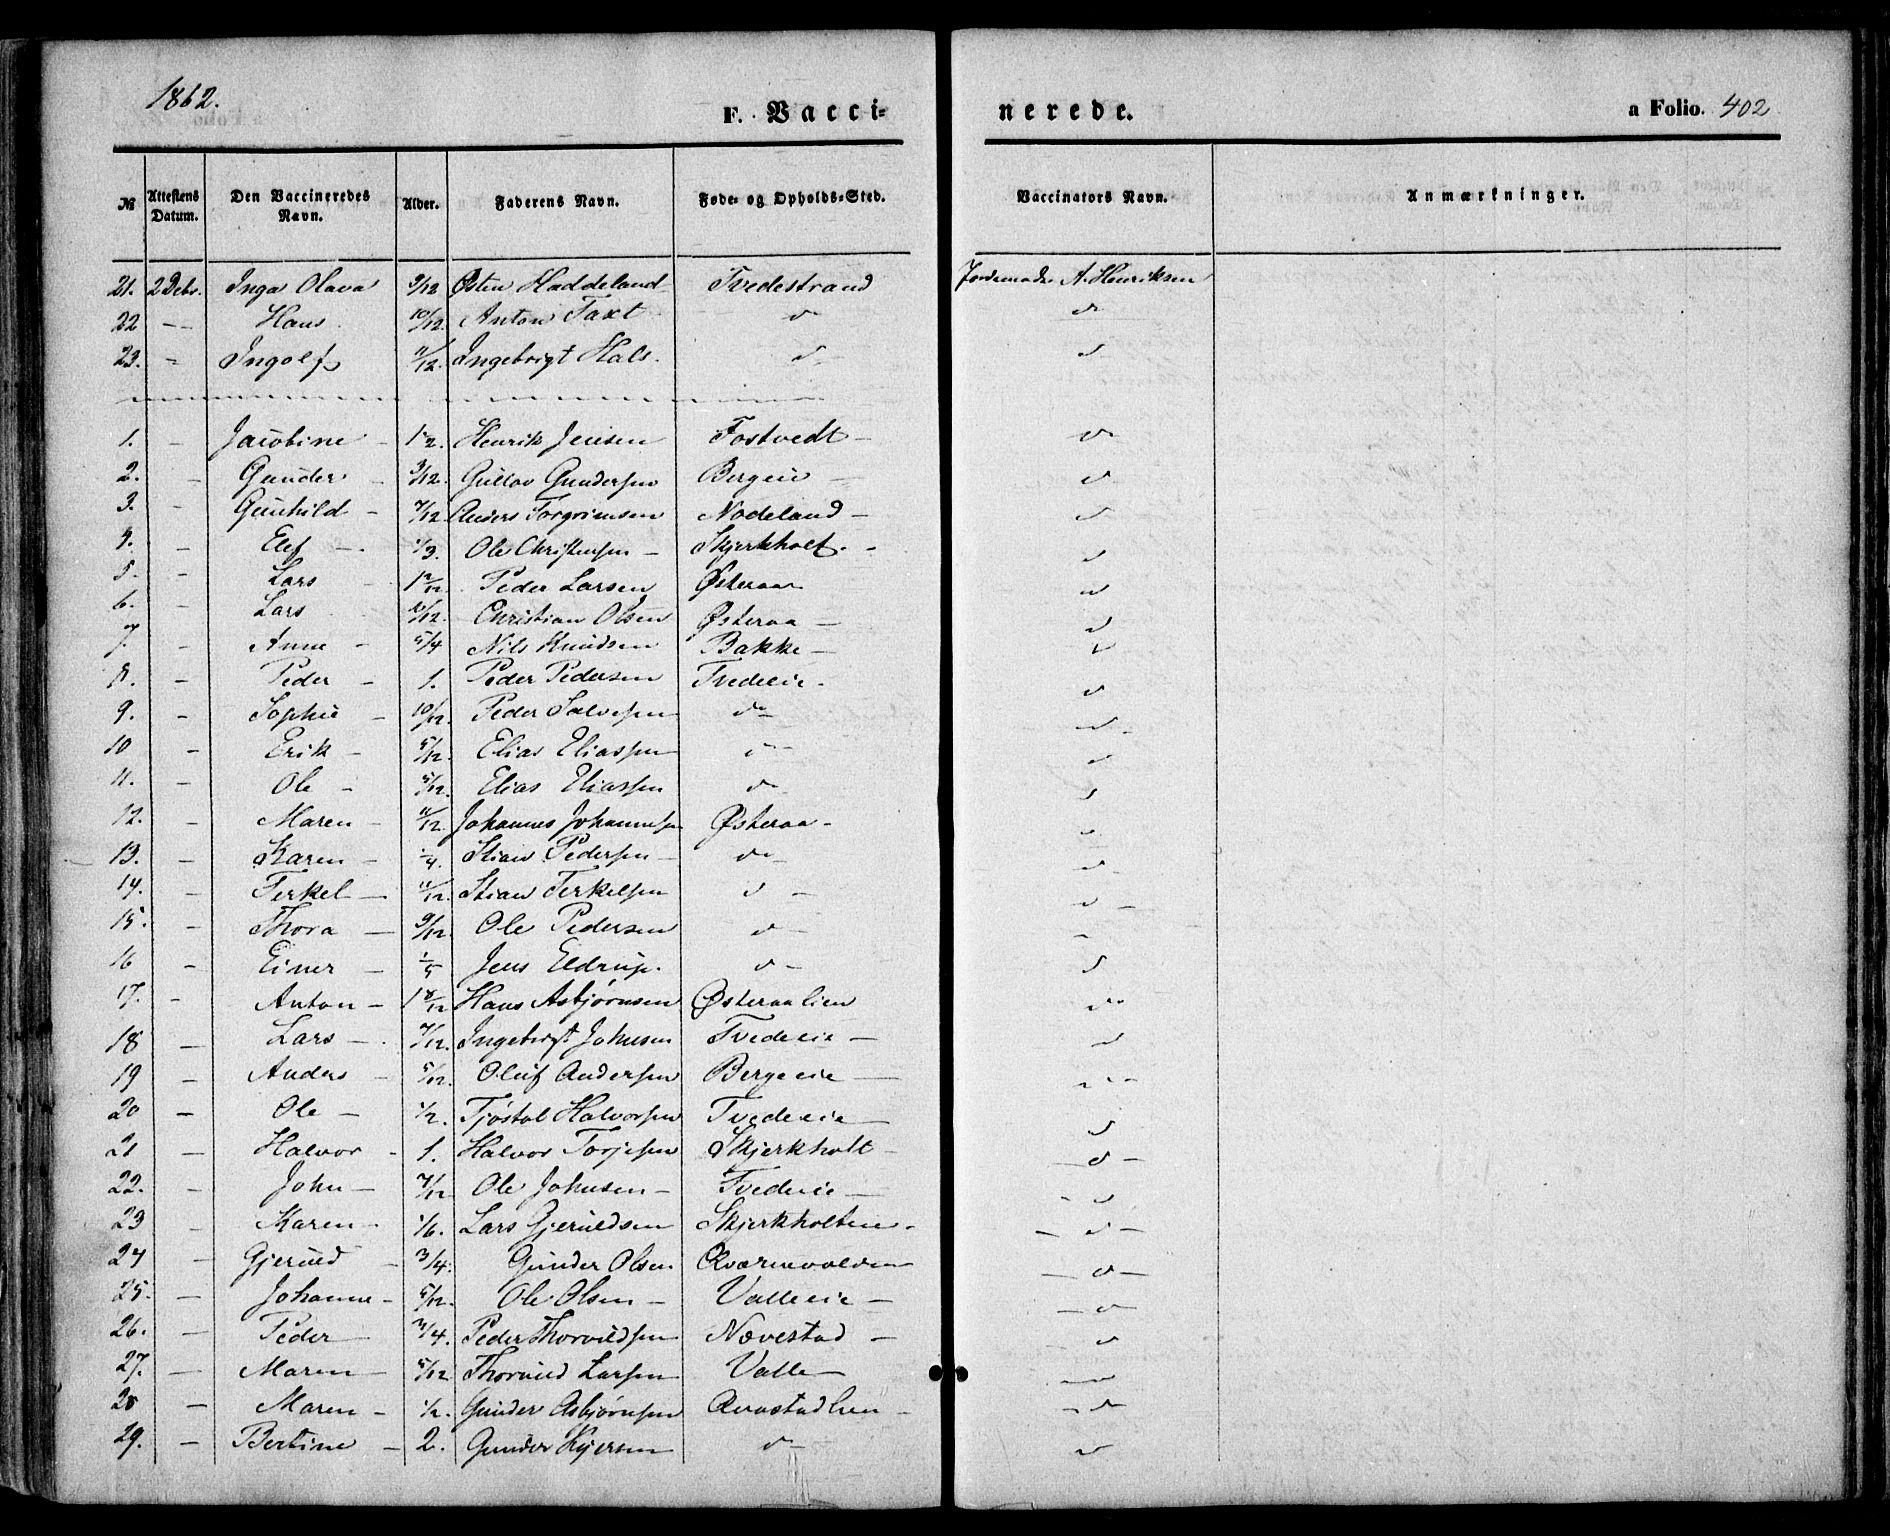 1862.
F. Vacci-
nerede.
a Folio. 402
№ Attestens Datum. Den Vaccineredes Navn. Alder. Faderens Navn. Føde- og Opholds-Sted. Vaccinators Navn. Anmærkninger.
21. 2 Debr. Inga Olava 9/12 Østen Haddeland Tvedestrand Jordemoder A. Henriksen
22 — Hans 10/12 Anton Taxt d d
23. - Ingolf 11/12 Ingebrigt Hals. d d
1. - Jacobine - Henrik Jensen Fostvedt - d
2. - Gunder - 3/12. Gullov Gundersen Bergeie - d
3. - Gunhild - 7/12 Anders Torgrimsen Nodeland - d
4. - Elef - 1/3. Ole Christensen - Skjerkholt - d
5. - Lars - Peder Larsen Østeraa d
6. - Lars Christian Olsen Østeraa - d
7. - Anne - 5/4 Nils Knudsen Bakke - d
8. - Peder - 1. Peder Pedersen Tvedeie - d
9. - Sophie - 10/12. Peder Salvesen d d
10 - Erik - 5/12. Elias Eliassen d d
11. - Ole - 5/12. Elias Eliassen d d
12. - Maren - 11/12. Johannes Johannesen Østeraa - d
13. - Karen - Stian Pedersen - d d
14. - Terkel - 11/12 Stian Terkelsen d - d -
15. - Thora - 9/12. Ole Pedersen d -
16 - Einer - Jens Eldrup. d - d
17. - Anton - 1 8/12 Hans Asbjørnsen Østeraalien d
18 - Lars - 7/12. Ingebrigt Johnsen Tvedeeie - d
19 - Anders - 5/12. Oluf Andersen Bergeeie - d
20 - Ole - 1/2. Tjøstol Halvorsen Tvedeeie d
21 - Halvor - 1. Halvor Torjesen Skjerkholt - d -
22. - John - 7/12 Ole Johnsen - Tvedeie - - d
23 - Karen - 1/6. Lars Gjeruldsen Skjerkholten - - d -
24 - Gjeruld - 3/4. Gunder Olsen Qværnevolden - d -
25. - Johanne - 5/12. Ole Olsen - Valleeie - - d
26. - Peder - 3/4. Peder Thorvildsen Nævestad - d
27. - Maren - 5/12 Thoruld Larsen Valle - d
28 - Maren - 1/2. Gunder Asbjørnsen - - d
29. - Bertine - 2. Gunder d - d